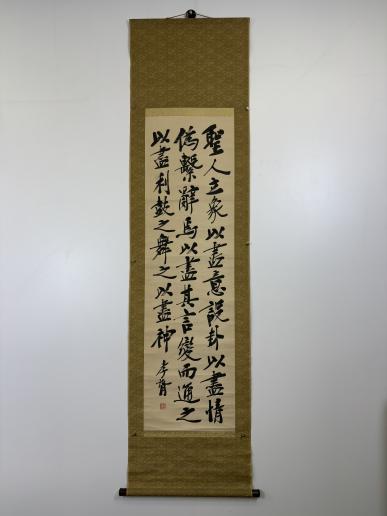 聖人立象以盡意設卦以盡情
偽繫辭焉以盡其言變而通之
以盡利鼓之舞之以盡神
孝胥